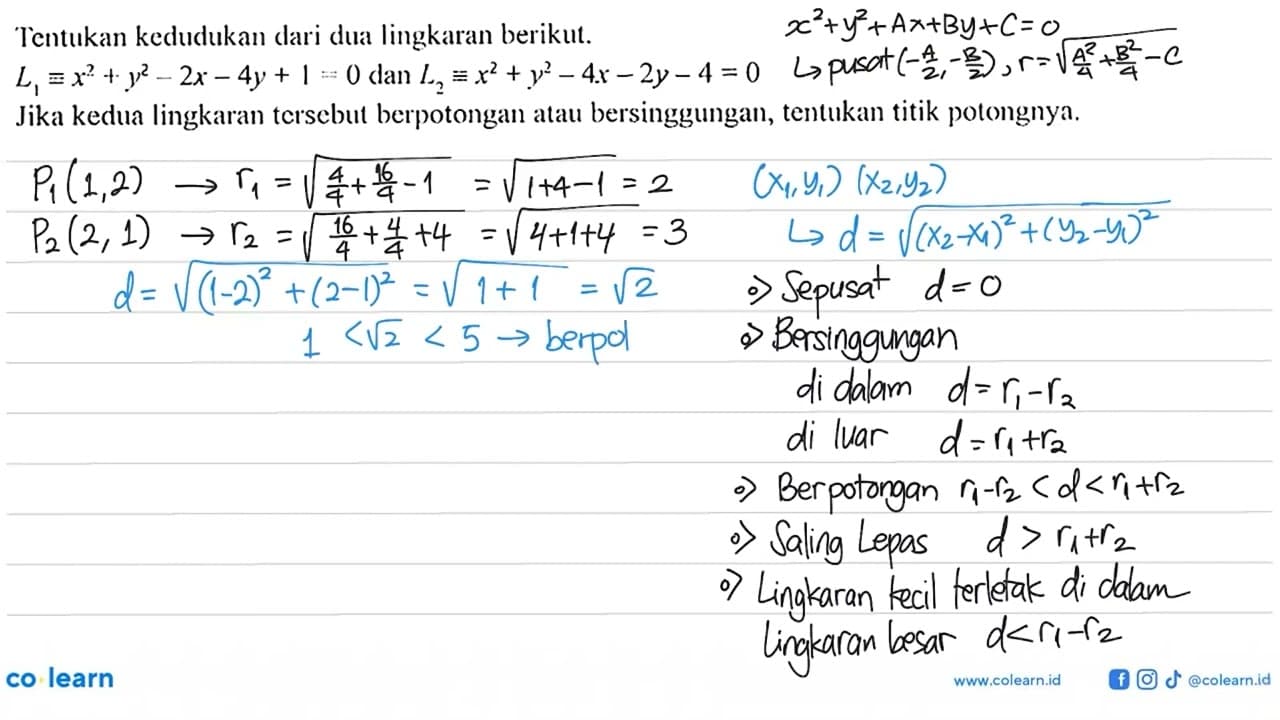 Tentukan kedudukan dari dua lingkaran berikut.
L₁ ≡ x² + y² – 2x – 4y + 1 = 0 dan L₂ ≡ x² + y² – 4x – 2y – 4 = 0
Jika kedua lingkaran tersebut berpotongan atau bersinggungan, tentukan titik potongnya.
x²+y²+Ax+By+C=0
↳ pusat (-A/2, -B/2), r=√(A²/4+B²/4-C)
P₁(1,2) → r₁ = √(4/4+16/4-1) = √(1+4-1) = 2
P₂(2,1) → r₂ = √(16/4+4/4+4) = √(4+1+4) = 3
d = √((1-2)²+(2-1)²) = √(1+1) = √2
1 < √2 < 5 → berpot
(x₁,y₁) (x₂,y₂)
↳ d = √((x₂-x₁)²+(y₂-y₁)²)
Sepusat d=0
Bersinggungan
di dalam d=r₁-r₂
di luar d=r₁+r₂
Berpotongan r₁-r₂<d<r₁+r₂
Saling Lepas d>r₁+r₂
Lingkaran kecil terletak di dalam
lingkaran besar d<r₁-r₂
co learn
www.colearn.id
@colearn.id